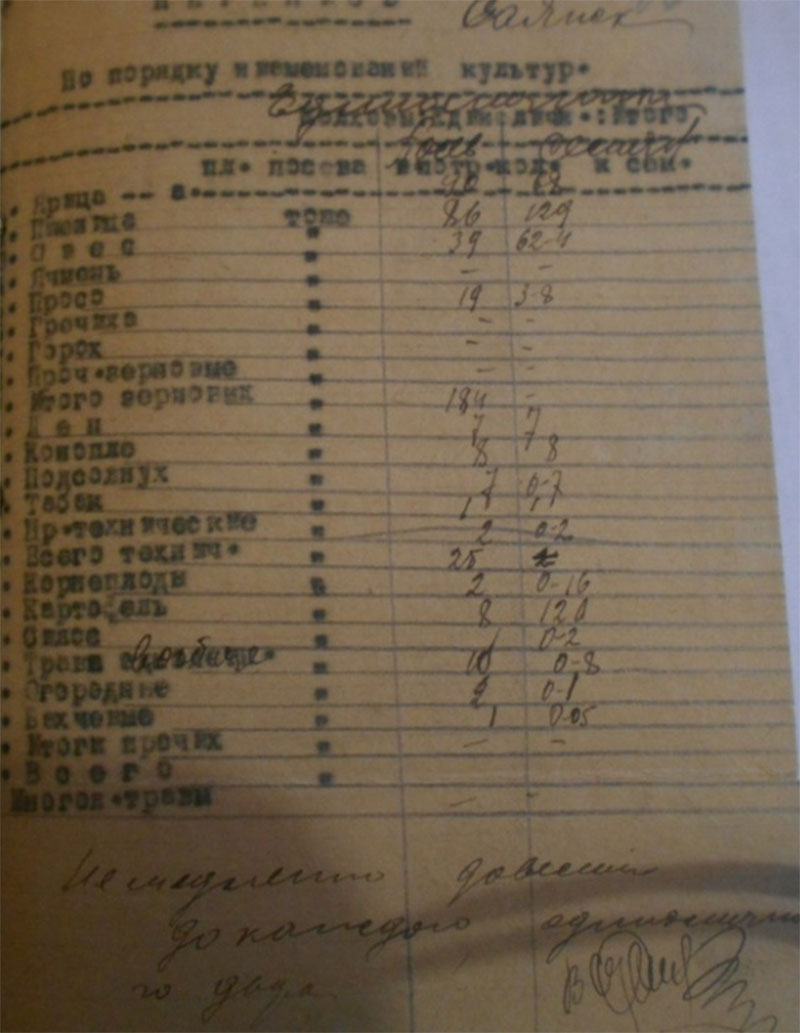 Саянск
По порядку наименований культур.
пл. посева в истр.кол. и сем.
90 88
Ярица -- а.
Пшеница тоже 86 129
О в е с " 39 62-4
Ячмень " — —
Просо " 19 3-8
Гречиха " - -
Горох " - -
Проч.зерновые " - -
Итого зерновых " 184 -
Л е н " 7 7
Конопля " 8 8
Подсолнух " 7 0-7
Табак "
Пр.технические " 2 0-2
Всего технич. " 25
Корнеплоды " 2 0-16
Картофель " 8 120
Силос " 1 0-2
Травы " 10 0-8
Огородные " 2 0-1
Бахчевые " 1 0-05
Итоги прочих " — —
В с е г о "
Многол.травы — -
Немедленно довести
до каждого единолично
го двора